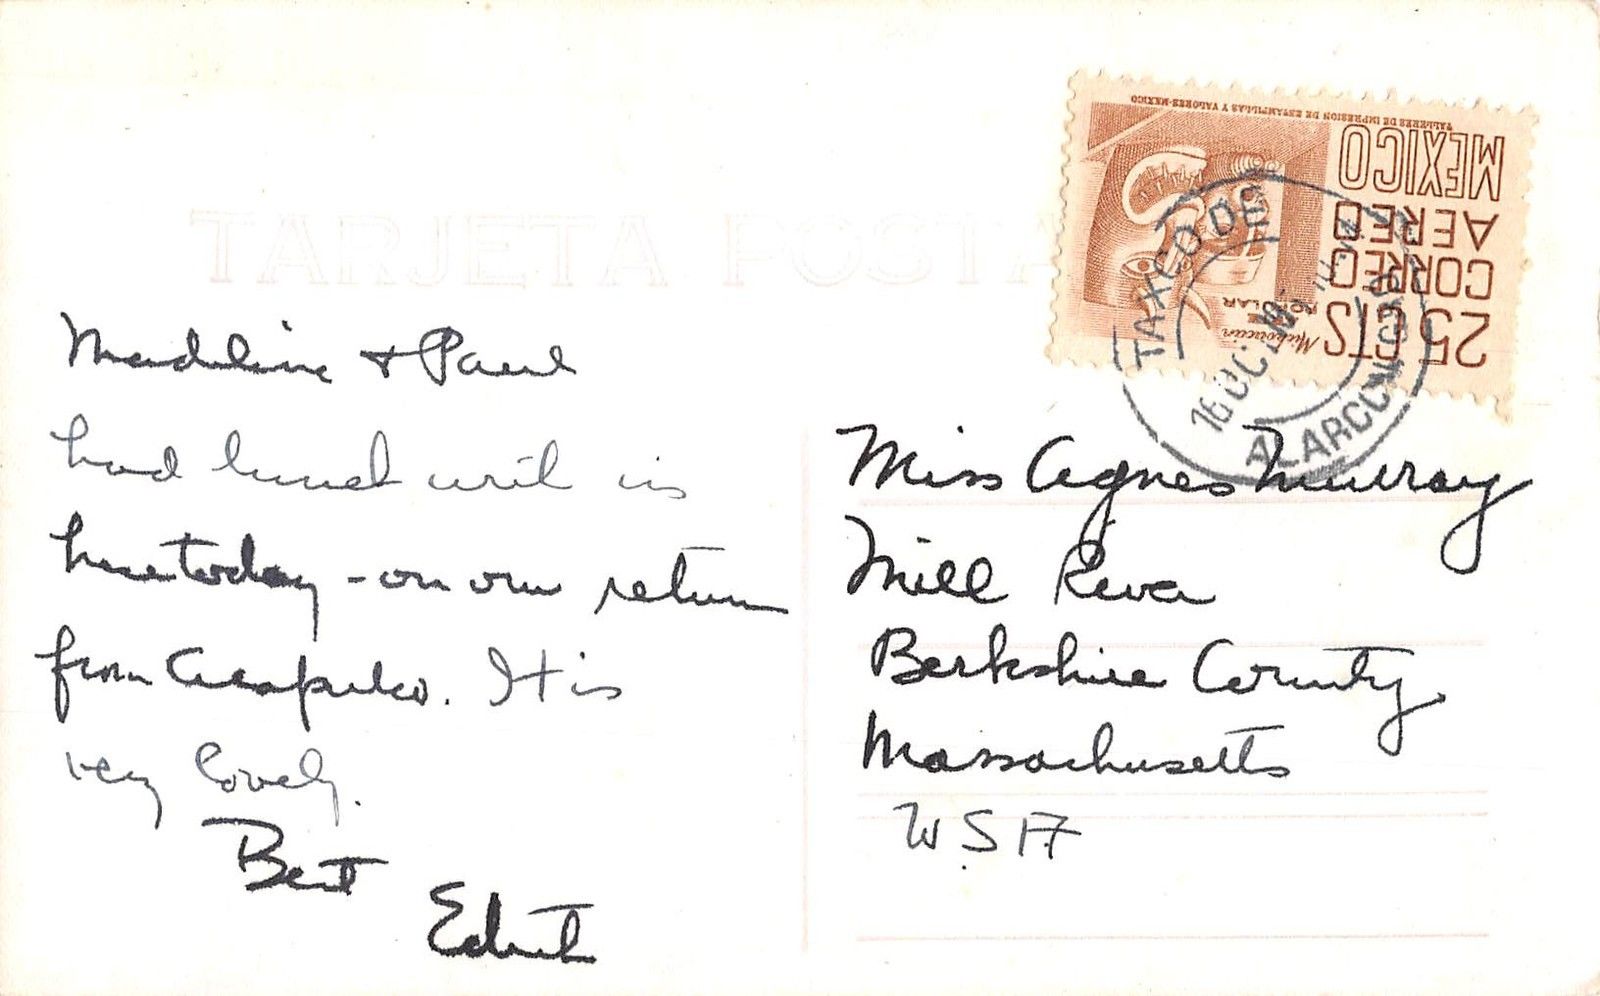 TARJETA POSTA
TALLERES DE IMPRESION DE ESTAMPILLAS Y VALORES-MEXICO
MEXICO
AEREO
CORREO
25 CTS
Michoacan
POPULAR
TAXCO DE
ALARCON, GRO
16 OCT
Madeline + Paul
had lunch with us
here today - on our return
from Acapulco. It is
very lovely.
Bert
Edith
Miss Agnes Murray
Mill River
Berkshire County
Massachusetts